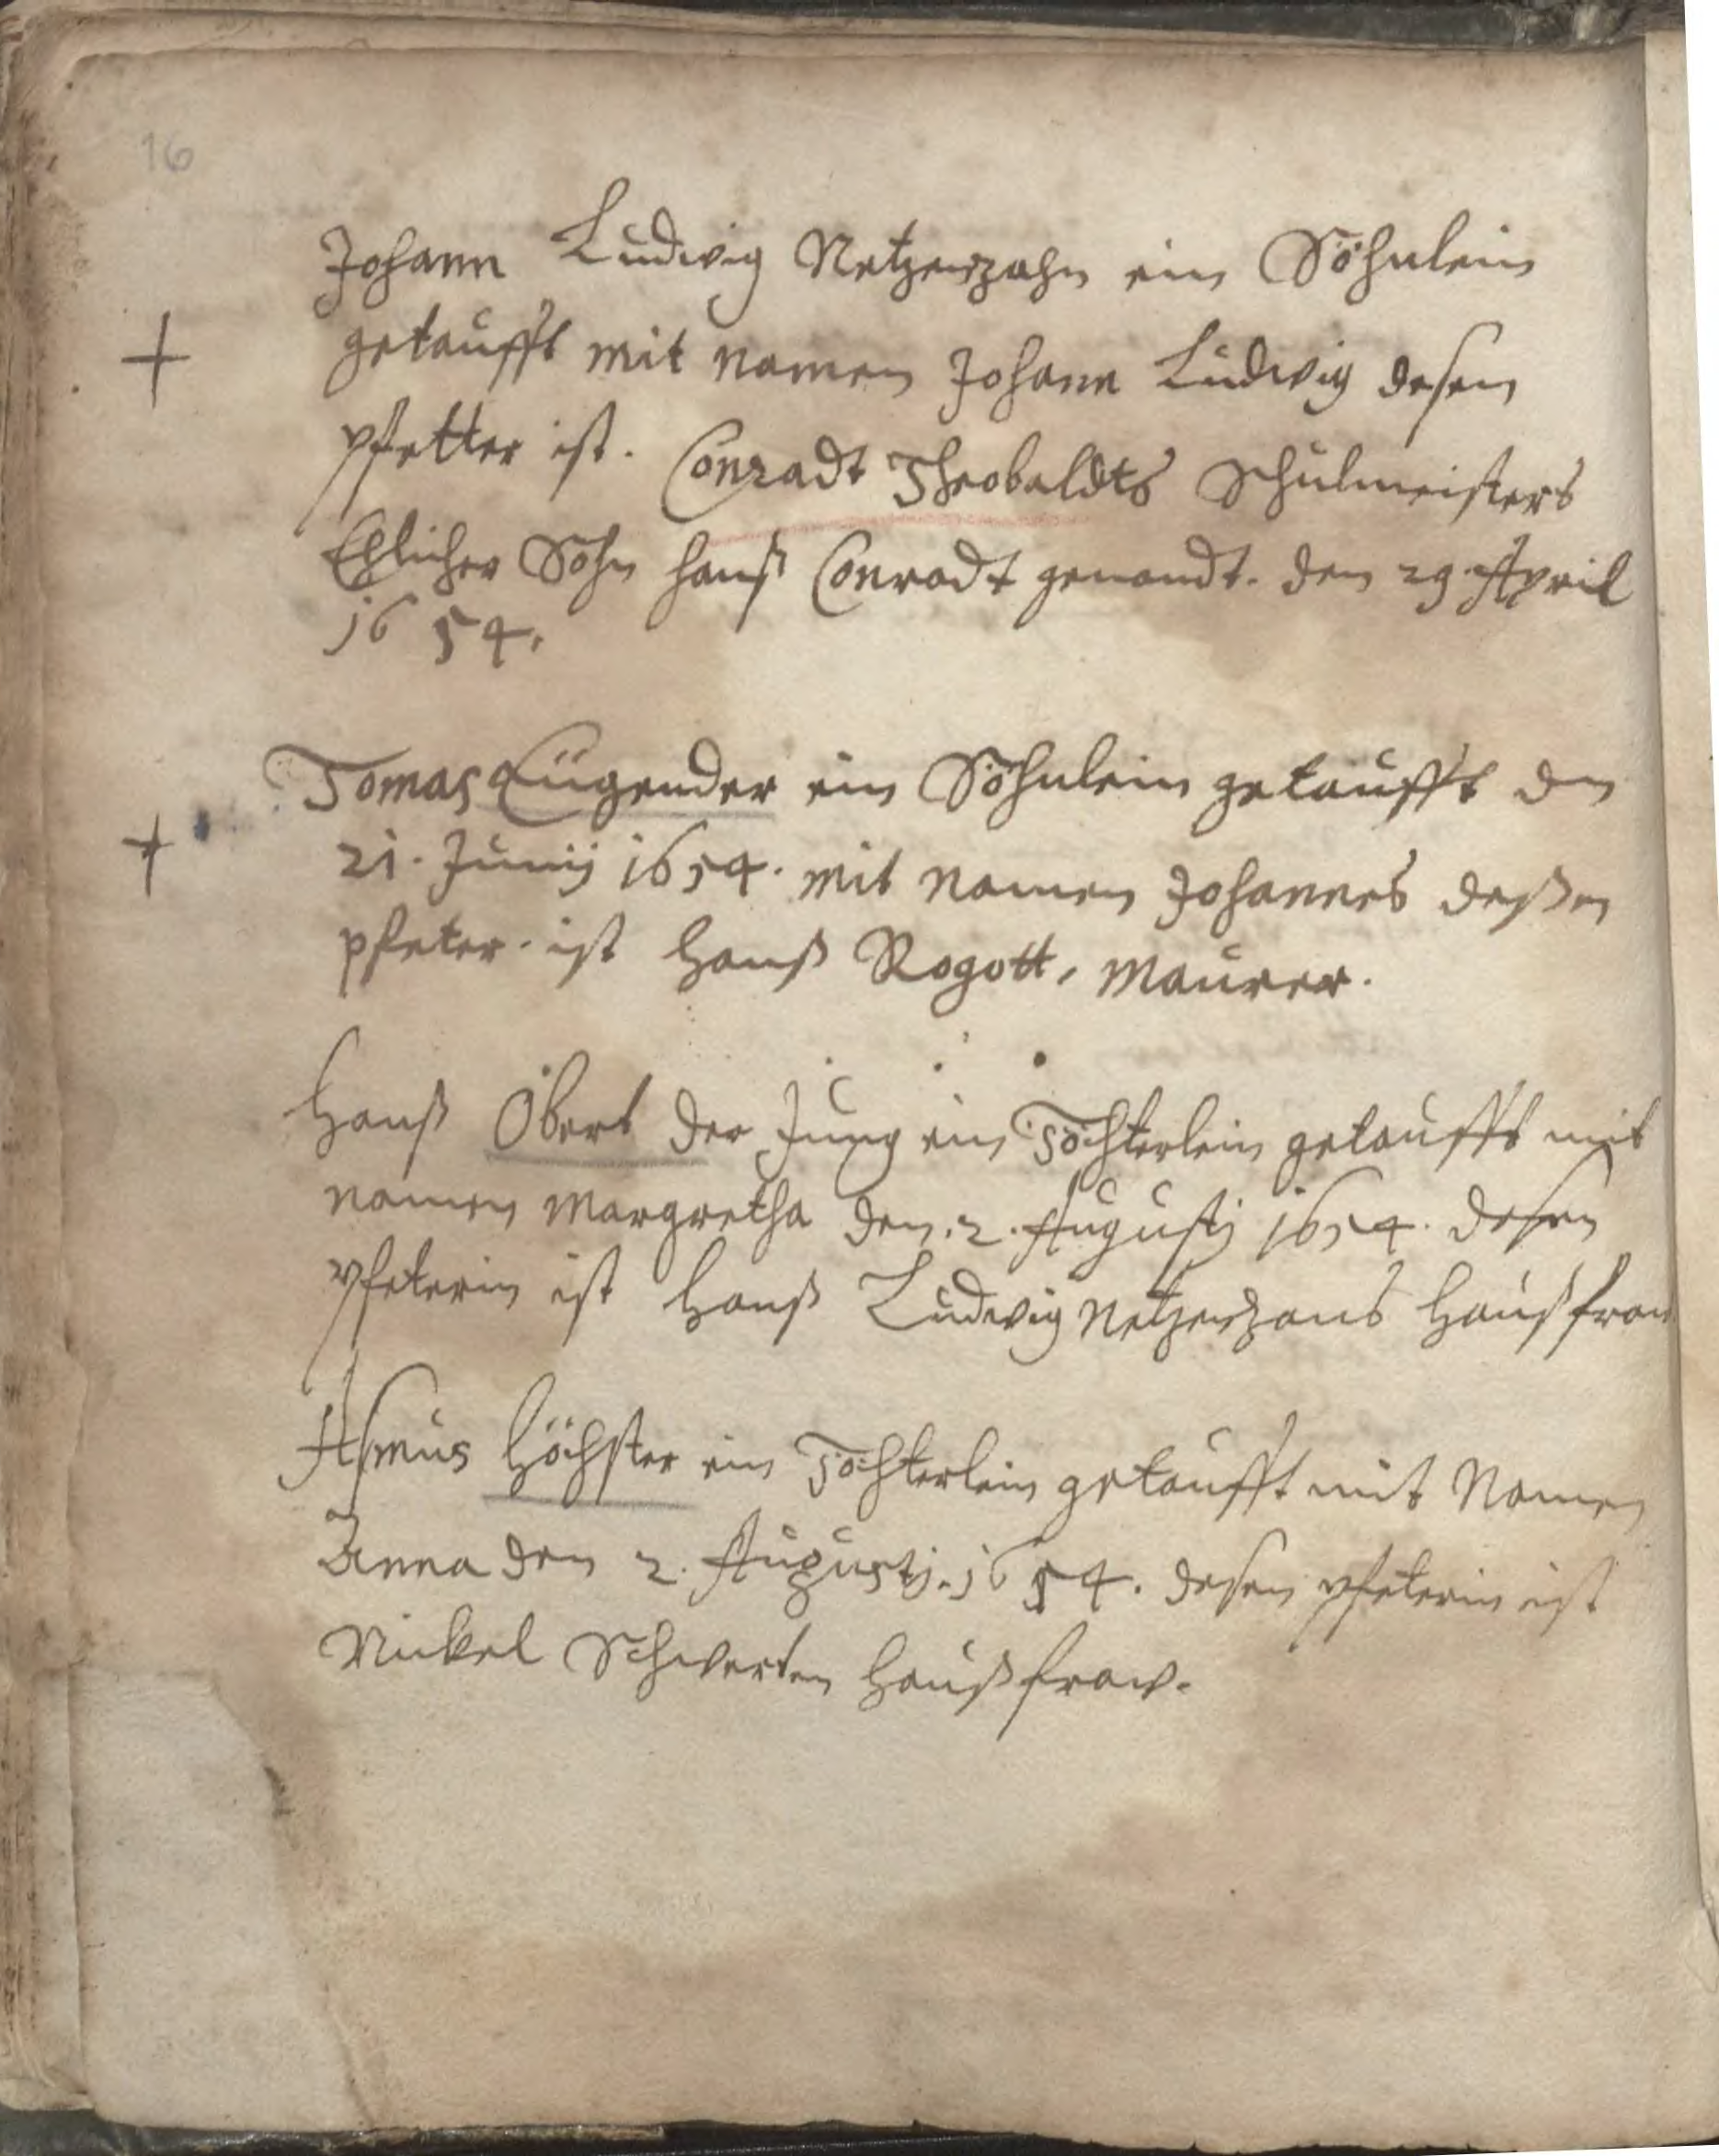 16
Johann Ludwig Netzerzahn ein Söhnlein
getaufft mit namen Johann Ludwig desen
pfetter ist. Conradt Theobaldts Schulmeisters
Ehlicher Sohn hanß Conradt genandt. den 29 April
1654.
Tomas Eügender ein Söhnlein getaufft den
21. Junij 1654. mit namen Johannes deßen
pfeter. ist Hanß Rogott, Maurer.
Hanß Obert der Jung ein Töchterlein getaufft mit
namen Margretha den. 2. Augustj 1654. desen
pfeterin ist Hanß Ludwig Netzerzans Haußfrau
Asmus Höchster ein Töchterlein getaufft mit Namen
Anna den 2. Augustj. 1654. desen pfeterin ist
Nickel Schwerten Haußfraw.